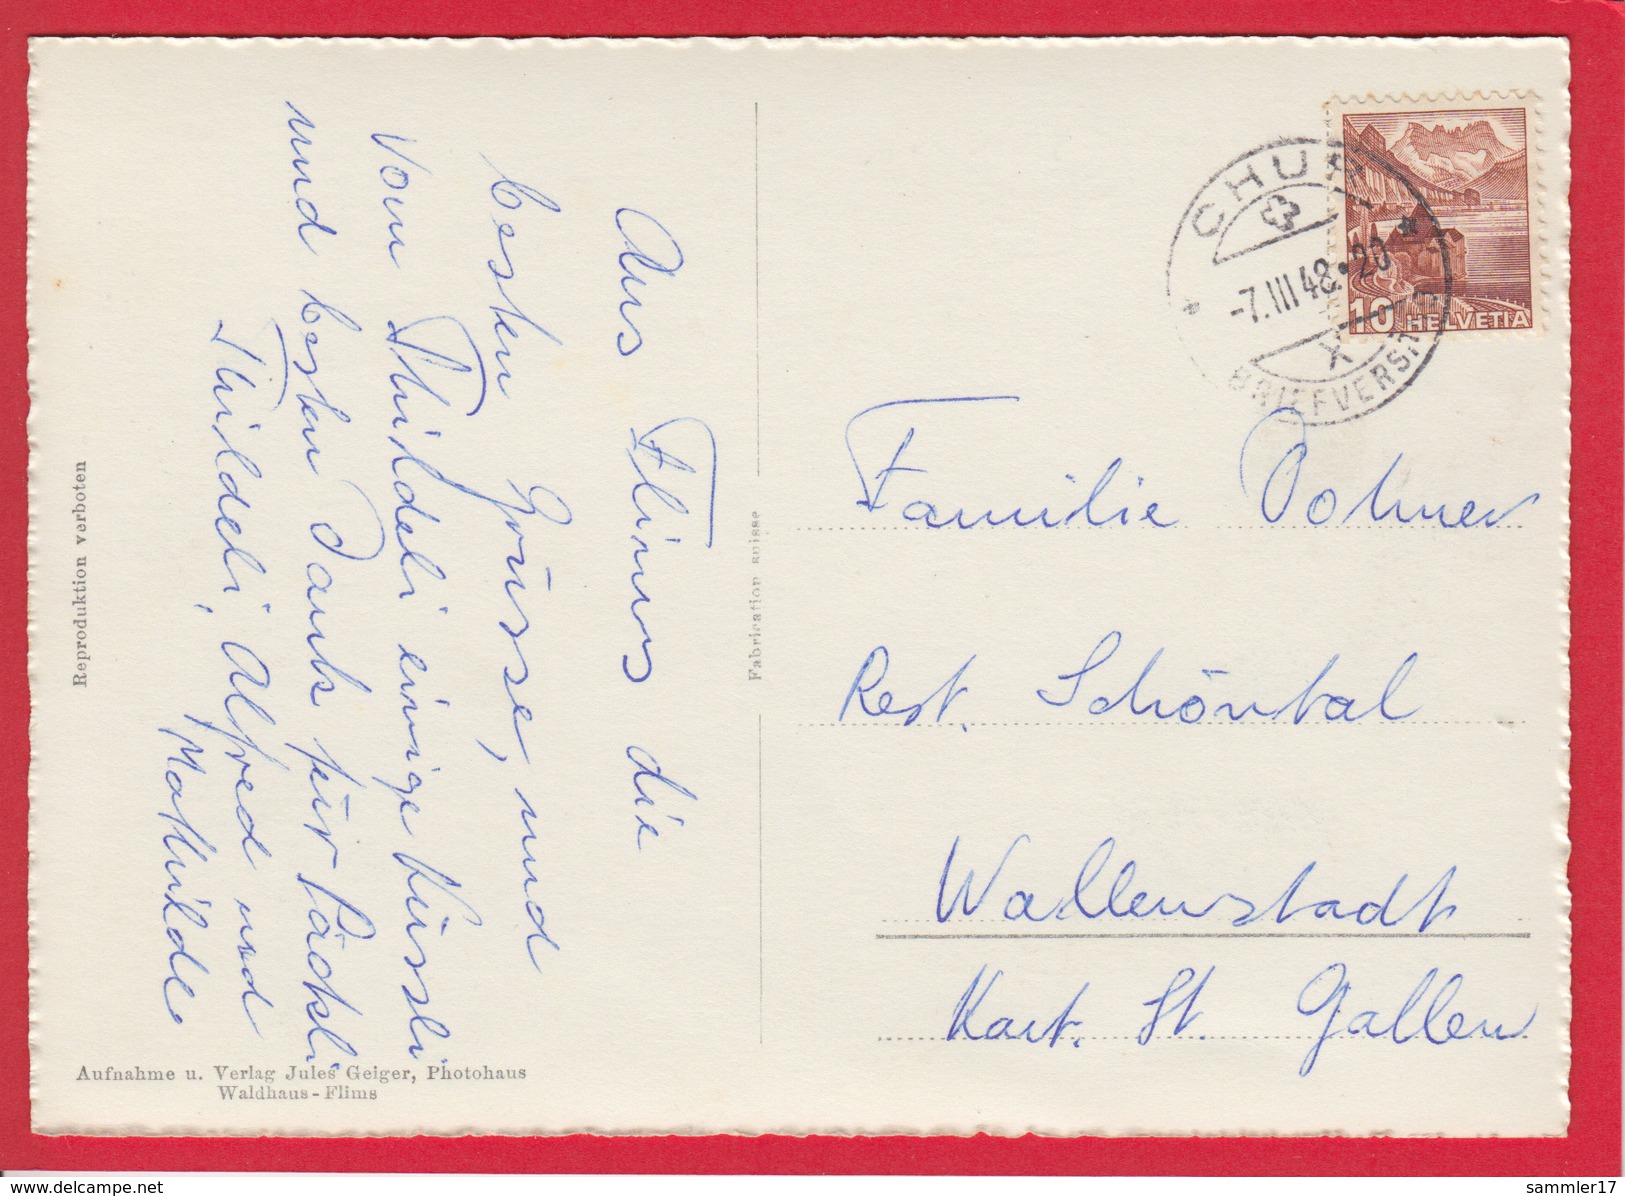 Aus Flims die
besten Grüsse, und
vom Thildeli einige Küssli
und besten Dank für Päckli
Thildeli, Alfred und
Mathilde
Reproduktion verboten
Aufnahme u. Verlag Jules Geiger, Photohaus
Waldhaus-Flims
Fabrication suisse
CHUR
-7.III 48.20
X
BRIEFVERSAND
10 HELVETIA
Familie
Rest. Schöntal
Wallenstadt
Kant. St. Gallen
www.delcampe.net
sammler17